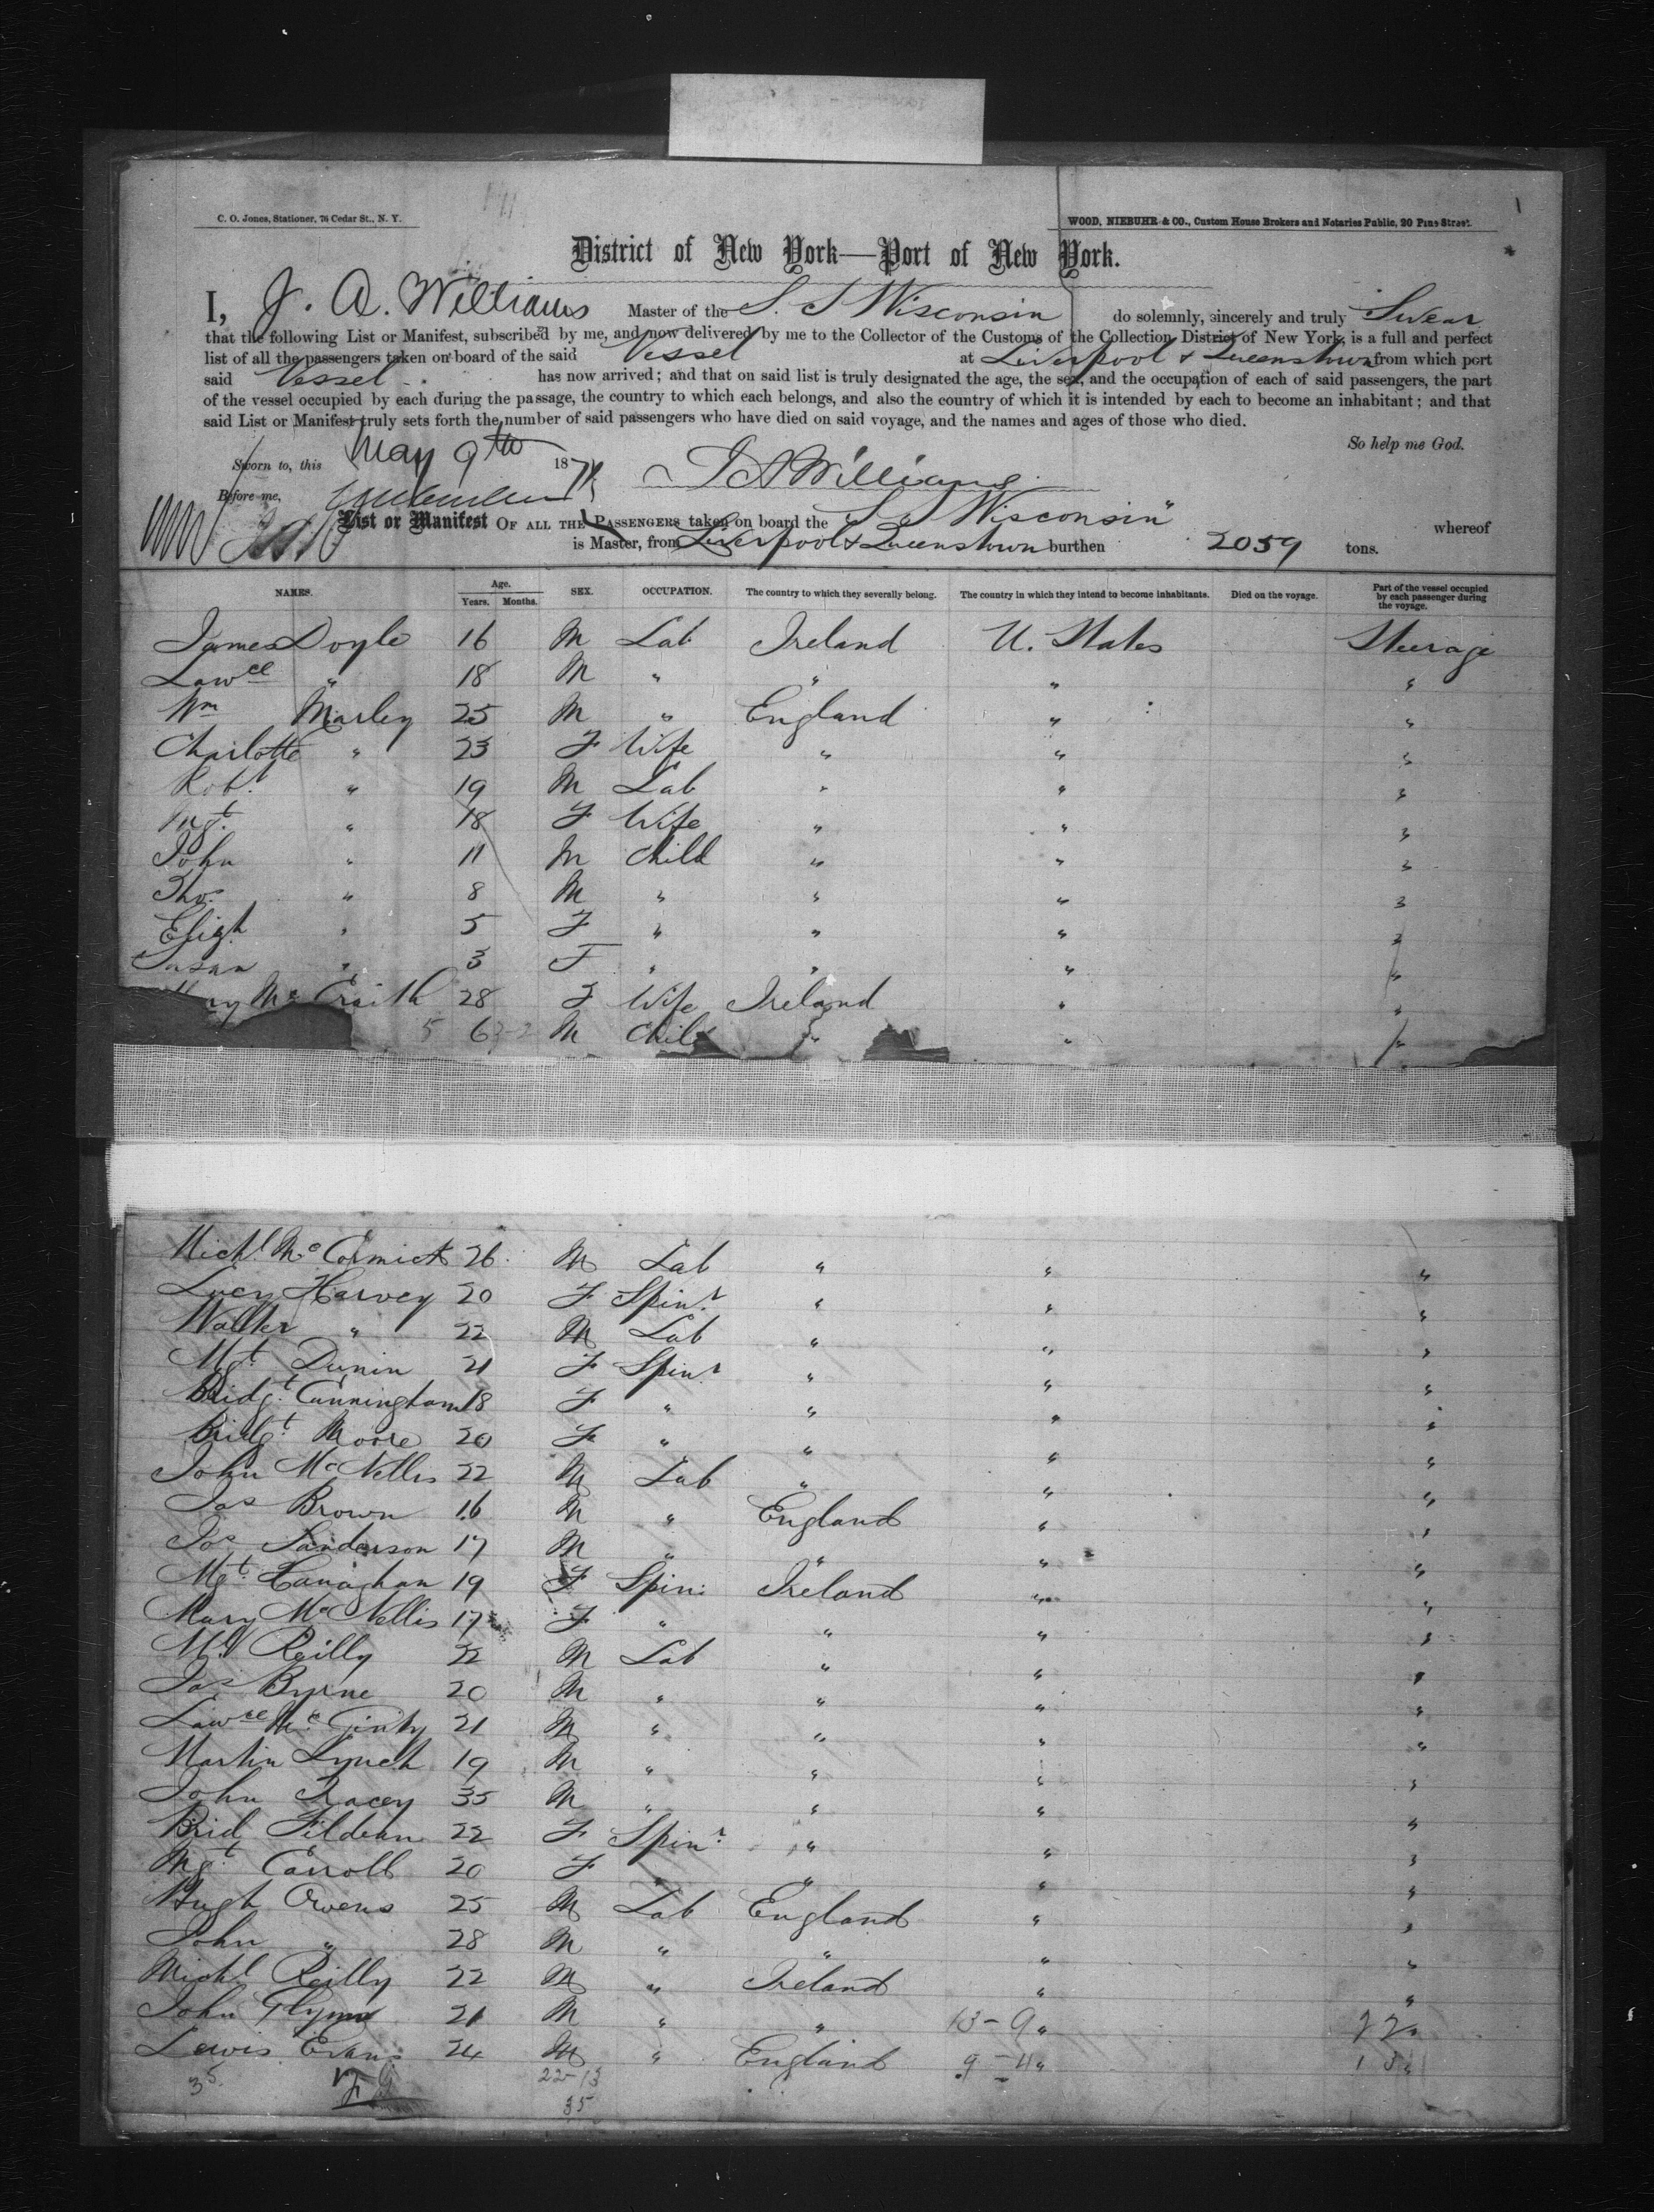 C. O. Jones, Stationer, 76 Cedar St., N. Y.
WOOD, NIEBUHR & CO., Custom House Brokers and Notaries Public, 20 Pine Street.
District of New York—Port of New York.
I, J. A. Williams Master of the S. S Wisconsin do solemnly, sincerely and truly Swear
that the following List or Manifest, subscribed by me, and now delivered by me to the Collector of the Customs of the Collection District of New York, is a full and perfect
list of all the passengers taken on board of the said Vessel at Liverpool & Queenstown from which port
said Vessel has now arrived; and that on said list is truly designated the age, the sex, and the occupation of each of said passengers, the part
of the vessel occupied by each during the passage, the country to which each belongs, and also the country of which it is intended by each to become an inhabitant; and that
said List or Manifest truly sets forth the number of said passengers who have died on said voyage, and the names and ages of those who died.
So help me God.
Sworn to, this May 9th 187
J A Williams
Before me,
List or Manifest OF ALL THE PASSENGERS taken on board the S S Wisconsin" whereof
is Master, from Liverpool & Queenstown burthen 2059 tons.
NAMES. Age. Years. Months. SEX. OCCUPATION. The country to which they severally belong. The country in which they intend to become inhabitants. Died on the voyage. Part of the vessel occupied by each passenger during the voyage.
James Doyle 16 M Lab Ireland U. States Steerage
Lawce " 18 M " " " "
Wm Marley 25 M " England " "
Charlotte " 23 F Wife " " "
Robt " 19 M Lab " " "
Mgt " 18 F Wife " " "
John " 11 M Child " " "
Thos " 8 M " " " "
Eligh " 5 F " " " "
Susan " 3 F " " " "
Mc Eraith 28 F Wife Ireland " "
5 6 M Child " " "
Michl Mc Cormick 26 M Lab " " "
Lucy Harvey 20 F Spinr " " "
Walter " 22 M Lab " " "
Mgt Dunin 21 F Spinr " " "
Bridgt Cunningham 18 F " " " "
Bridgt Moore 20 F " " " "
John McNellis 22 M Lab " " "
Jas Brown 16 M " England " "
Jos Sanderson 17 M " " " "
Mgt Canaghan 19 F Spin: Ireland " "
Mary McNellis 17 F " " " "
Reilly 22 M Lab " " "
Jas Byrne 20 M " " " "
Lawce Mc Ginty 21 M " " " "
Martin Lynch 19 M " " " "
John Tracey 35 M " " " "
Brid Fildean 22 F Spinr " " "
Mgt Carroll 20 F " " " "
Hugh Owens 25 M Lab England " "
John " 28 M " " " "
Michl Reilly 22 M " Ireland " "
John Flynn 21 M " " 13-9 " 22 "
Lewis Evans 24 M " England 9-4 " "
35 22-13
35